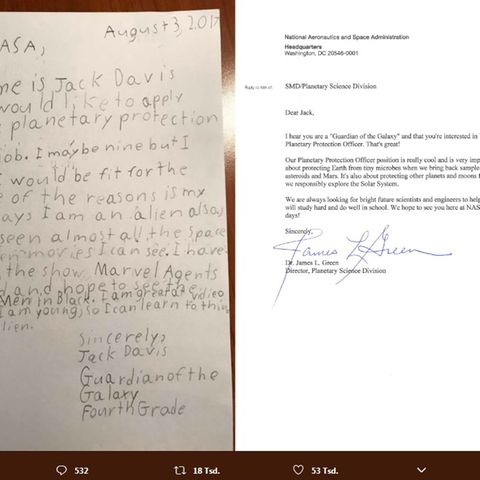 August 3, 2017
ASA,
me is Jack Davis
would like to apply
planetary protection
job. I may be nine but I
I would be fit for the
e of the reasons is my
ays I am an alien also
seen almost all the space
movies I can see. I have
the show Marvel Agents
d and hope to see the
Men in Black. I am great at vidieo
I am young, so I can learn to thin
lien.
Sincerely,
Jack Davis
Guardian of the
Galaxy
Fourth Grade
National Aeronautics and Space Administration
Headquarters
Washington, DC 20546-0001
Reply to Attn of:
SMD/Planetary Science Division
Dear Jack,
I hear you are a "Guardian of the Galaxy" and that you're interested in
Planetary Protection Officer. That's great!
Our Planetary Protection Officer position is really cool and is very imp
about protecting Earth from tiny microbes when we bring back sample
asteroids and Mars. It's also about protecting other planets and moons f
we responsibly explore the Solar System.
We are always looking for bright future scientists and engineers to help
will study hard and do well in school. We hope to see you here at NAS
days!
Sincerely,
James L Green
Dr. James L. Green
Director, Planetary Science Division
532
18 Tsd.
53 Tsd.